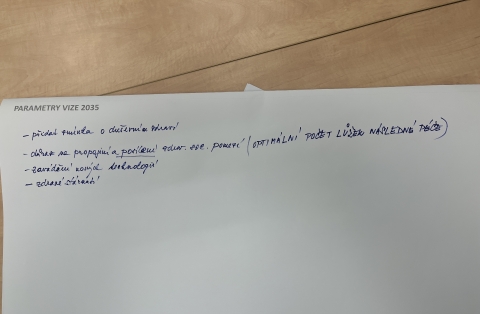 PARAMETRY VIZE 2035
- přidat zmínka o duševním zdraví
- důraz na propojení a posílení zdrav. soc. pomezí (OPTIMÁLNÍ POČET LŮŽEK NÁSLEDNÉ PÉČE)
- zavádění nových technologií
- zdravé stárnutí